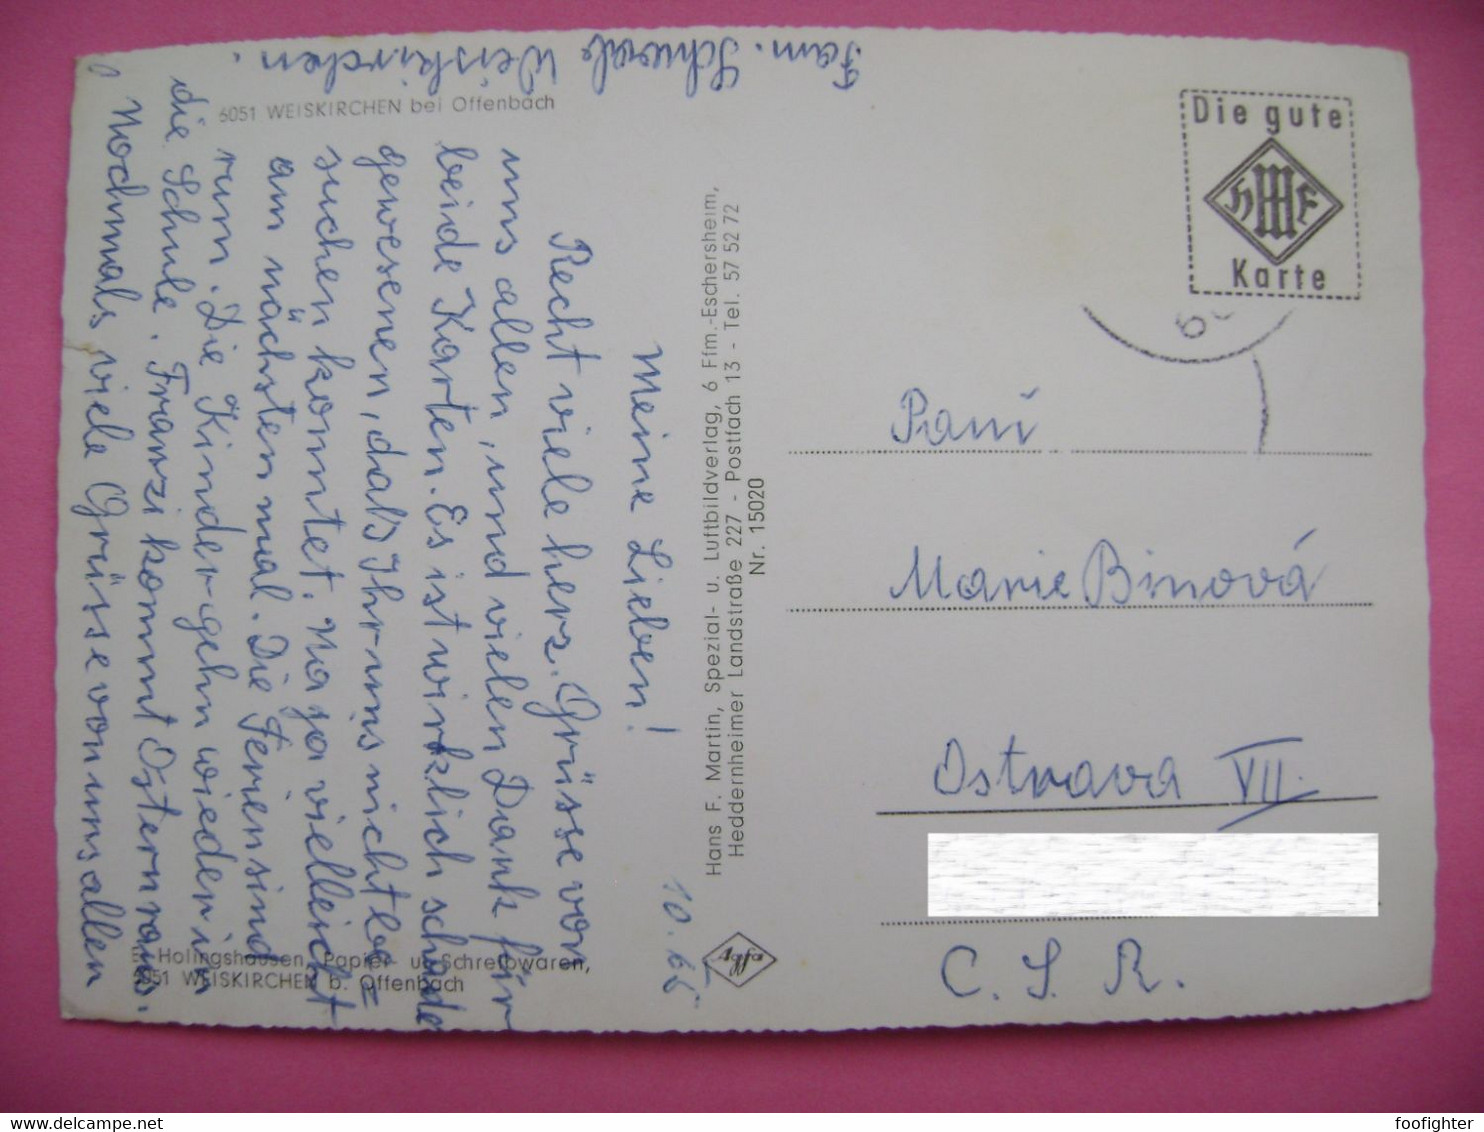 Fam. Schwab Weiskirchen.
6051 WEISKIRCHEN bei Offenbach
10.
Meine Lieben!
Recht viele herz. Grüsse von
uns allen, und vielen Dank für
beide Karten. Es ist wirklich schade
gewesen, daß Ihr uns nicht be=
suchen konntet. Na ja vielleicht
am nächsten mal. Die Ferien sind
rum. Die Kinder gehn wieder in
die Schule. Franzi kommt Ostern raus.
Nochmals viele Grüsse von uns allen
E. Holingshausen, Papier u. Schreibwaren,
6051 WEISKIRCHEN b. Offenbach
Agfa
Hans F. Martin, Spezial- u. Luftbildverlag, 6 Ffm.-Eschersheim,
Heddernheimer Landstraße 227 - Postfach 13 - Tel. 57 52 72
Nr. 15020
Die gute
HMF
Karte
Paní
Marie Binová
Ostrava VII.
C. S. R.
foofighter
delcampe.net